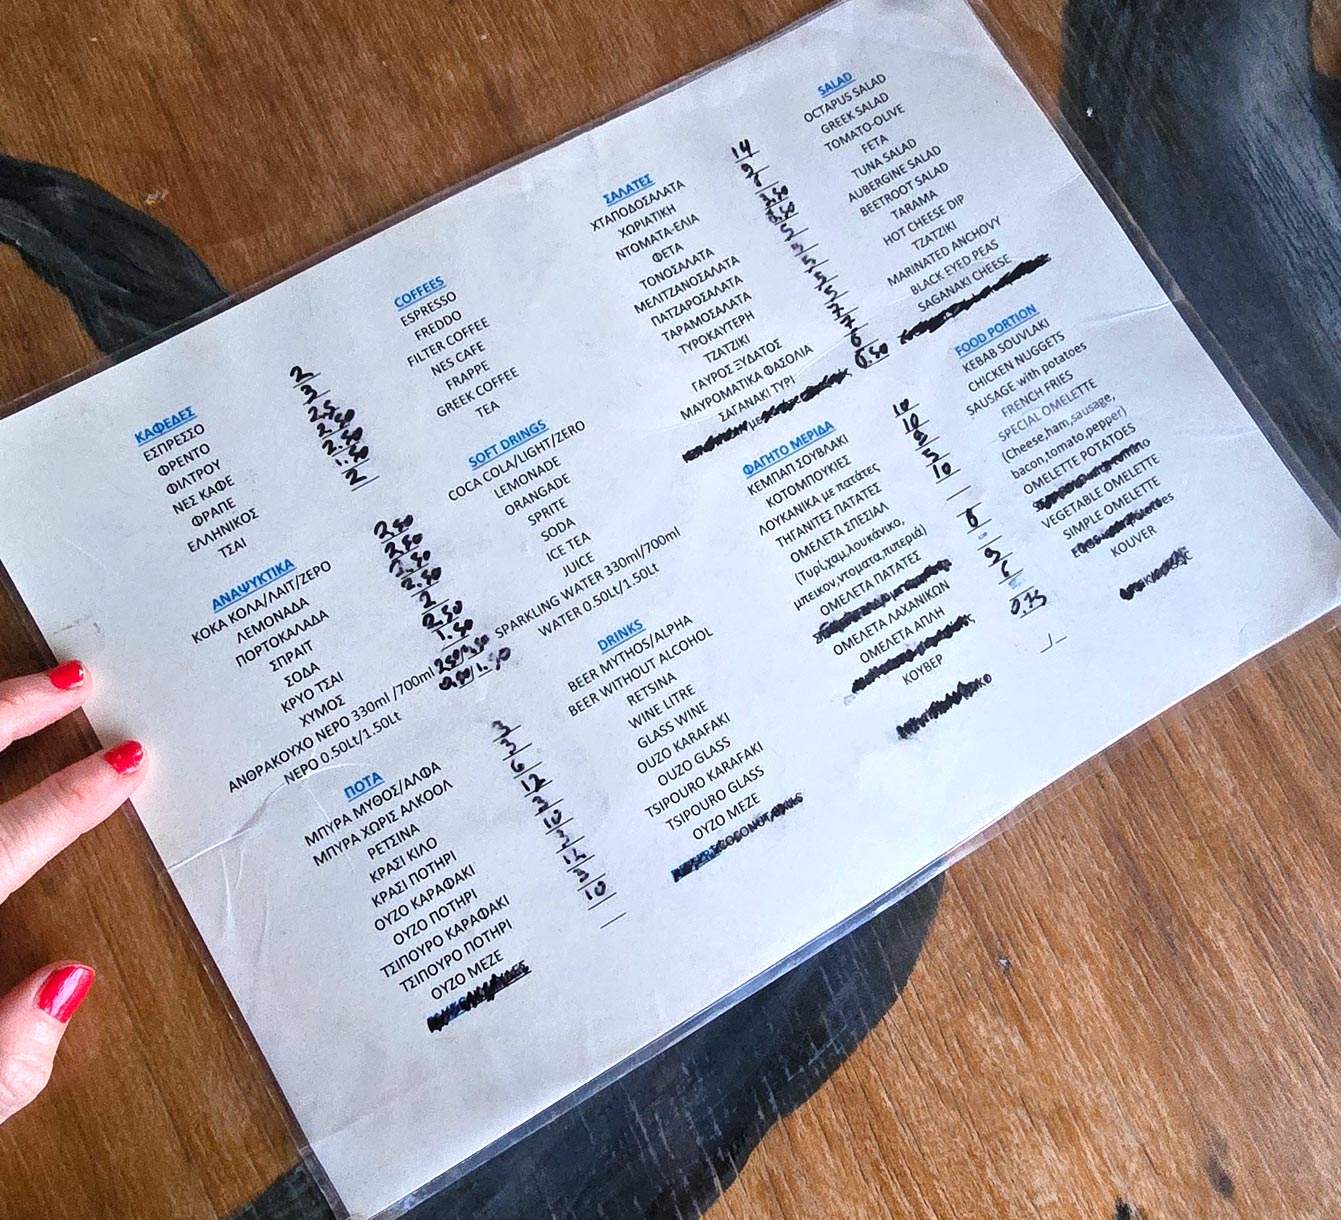 ΚΑΦΕΔΕΣ
ΕΣΠΡΕΣΣΟ
ΦΡΕΝΤΟ
ΦΙΛΤΡΟΥ
ΝΕΣ ΚΑΦΕ
ΦΡΑΠΕ
ΕΛΛΗΝΙΚΟΣ
ΤΣΑΙ
2
3
2.50
2.50
2.50
1.50
2
COFFEES
ESPRESSO
FREDDO
FILTER COFFEE
NES CAFE
FRAPPE
GREEK COFFEE
TEA
ΑΝΑΨΥΚΤΙΚΑ
ΚΟΚΑ ΚΟΛΑ/ΛΑΙΤ/ΖΕΡΟ
ΛΕΜΟΝΑΔΑ
ΠΟΡΤΟΚΑΛΑΔΑ
ΣΠΡΑΙΤ
ΣΟΔΑ
ΚΡΥΟ ΤΣΑΙ
ΧΥΜΟΣ
ΑΝΘΡΑΚΟΥΧΟ ΝΕΡΟ 330ml /700ml
ΝΕΡΟ 0.50Lt/1.50Lt
2.50
2.50
2.50
2.50
2
2.50
1.50
0.50/1.50
SOFT DRINGS
COCA COLA/LIGHT/ZERO
LEMONADE
ORANGADE
SPRITE
SODA
ICE TEA
JUICE
SPARKLING WATER 330ml/700ml
WATER 0.50Lt/1.50Lt
ΠΟΤΑ
ΜΠΥΡΑ ΜΥΘΟΣ/ΑΛΦΑ
ΜΠΥΡΑ ΧΩΡΙΣ ΑΛΚΟΟΛ
ΡΕΤΣΙΝΑ
ΚΡΑΣΙ ΚΙΛΟ
ΚΡΑΣΙ ΠΟΤΗΡΙ
ΟΥΖΟ ΚΑΡΑΦΑΚΙ
ΟΥΖΟ ΠΟΤΗΡΙ
ΤΣΙΠΟΥΡΟ ΚΑΡΑΦΑΚΙ
ΤΣΙΠΟΥΡΟ ΠΟΤΗΡΙ
ΟΥΖΟ ΜΕΖΕ
3
3
6
12
3
10
3
12
3
10
DRINKS
BEER MYTHOS/ALPHA
BEER WITHOUT ALCOHOL
RETSINA
WINE LITRE
GLASS WINE
OUZO KARAFAKI
OUZO GLASS
TSIPOURO KARAFAKI
TSIPOURO GLASS
OYZO MEZE
ΣΑΛΑΤΕΣ
ΧΤΑΠΟΔΟΣΑΛΑΤΑ
ΧΩΡΙΑΤΙΚΗ
ΝΤΟΜΑΤΑ-ΕΛΙΑ
ΦΕΤΑ
ΤΟΝΟΣΑΛΑΤΑ
ΜΕΛΙΤΖΑΝΟΣΑΛΑΤΑ
ΠΑΤΖΑΡΟΣΑΛΑΤΑ
ΤΑΡΑΜΟΣΑΛΑΤΑ
ΤΥΡΟΚΑΥΤΕΡΗ
ΤΖΑΤΖΙΚΙ
ΓΑΥΡΟΣ ΞΥΔΑΤΟΣ
ΜΑΥΡΟΜΑΤΙΚΑ ΦΑΣΟΛΙΑ
ΣΑΓΑΝΑΚΙ ΤΥΡΙ
14
9
3.50
5
5
5
5
7
7
6
SALAD
OCTAPUS SALAD
GREEK SALAD
TOMATO-OLIVE
FETA
TUNA SALAD
AUBERGINE SALAD
BEETROOT SALAD
TARAMA
HOT CHEESE DIP
TZATZIKI
MARINATED ANCHOVY
BLACK EYED PEAS
SAGANAKI CHEESE
ΦΑΓΗΤΟ ΜΕΡΙΔΑ
ΚΕΜΠΑΠ ΣΟΥΒΛΑΚΙ
ΚΟΤΟΜΠΟΥΚΙΕΣ
ΛΟΥΚΑΝΙΚΑ με πατάτες
ΤΗΓΑΝΙΤΕΣ ΠΑΤΑΤΕΣ
ΟΜΕΛΕΤΑ ΣΠΕΣΙΑΛ
(Τυρί,χαμ,λουκάνικο,
μπεικον,ντοματα,πιπεριά)
ΟΜΕΛΕΤΑ ΠΑΤΑΤΕΣ
ΟΜΕΛΕΤΑ ΛΑΧΑΝΙΚΩΝ
ΟΜΕΛΕΤΑ ΑΠΛΗ
ΚΟΥΒΕΡ
10
10
9
5
10
6
9
6
0.75
FOOD PORTION
KEBAB SOUVLAKI
CHICKEN NUGGETS
SAUSAGE with potatoes
FRENCH FRIES
SPECIAL OMELETTE
(Cheese,ham,sausage,
bacon,tomato,pepper)
OMELETTE POTATOES
VEGETABLE OMELETTE
SIMPLE OMELETTE
KOUVER